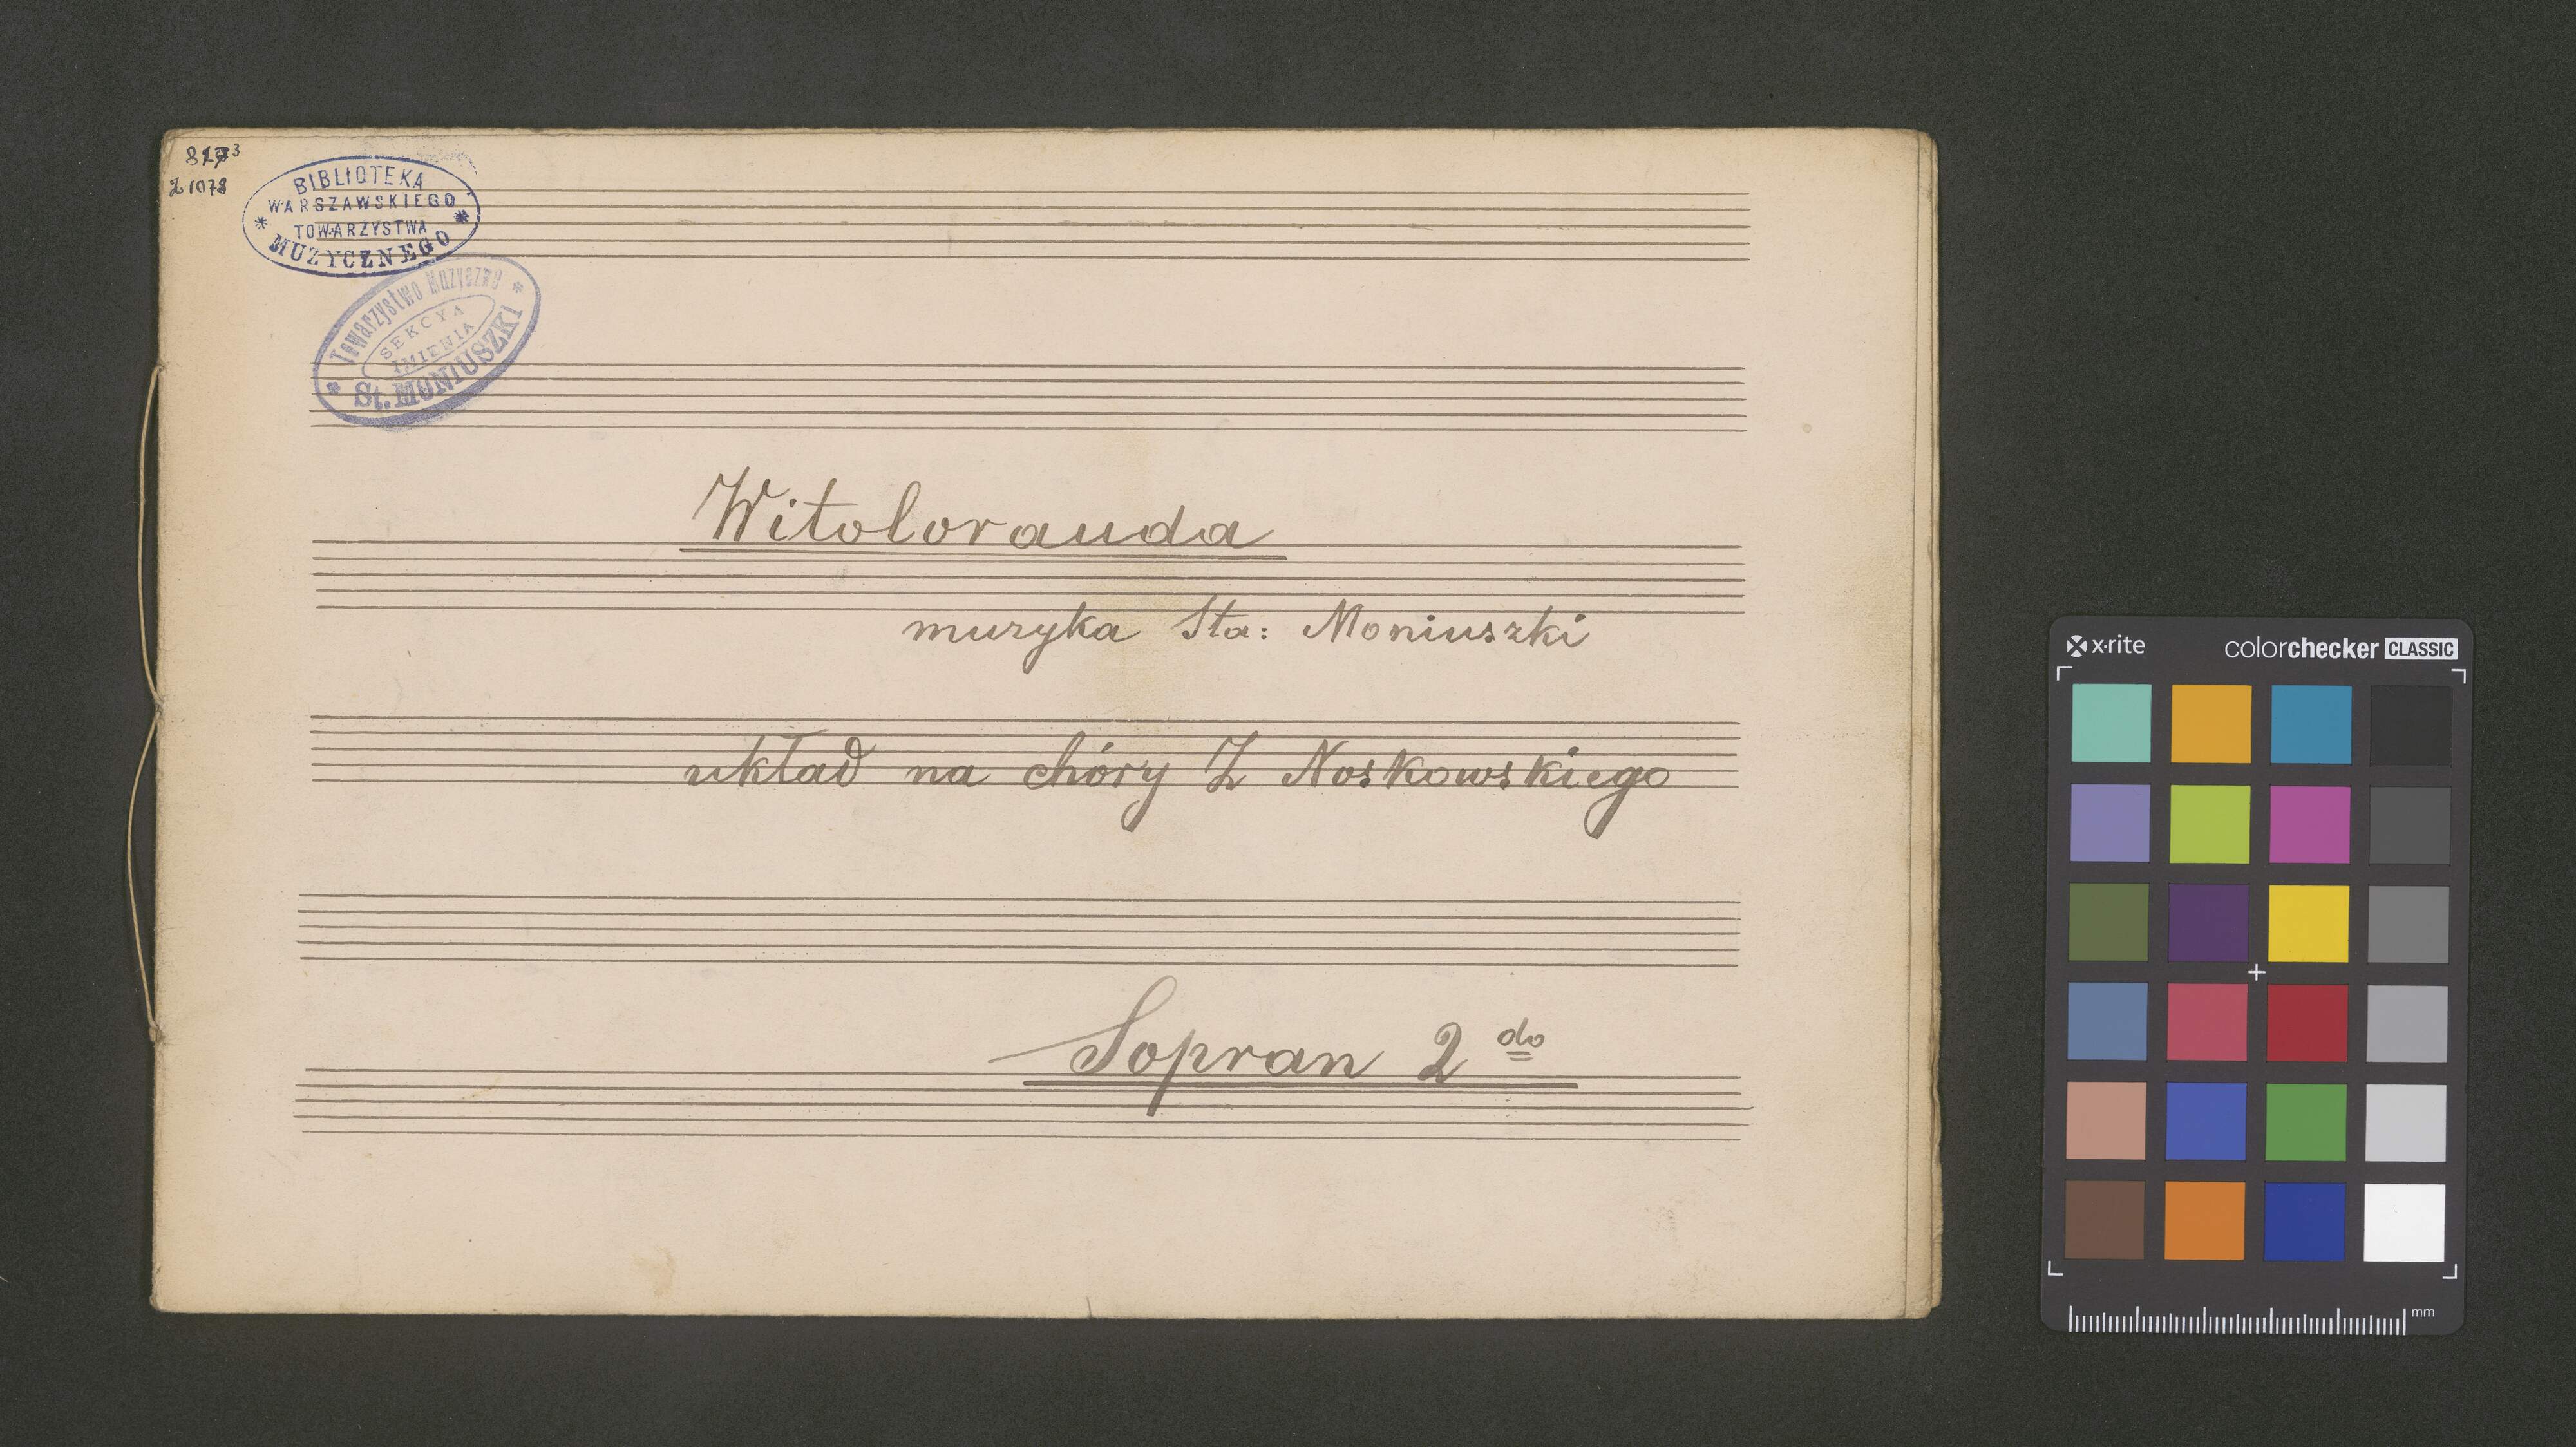 Z 1078
BIBLIOTEKA
WARSZAWSKIEGO
TOWARZYSTWA
MUZYCZNEGO
Towarzystwo Muzyczne
SEKCYA
IMIENIA
St. MONIUSZKI
Witolorauda
muzyka Sta: Moniuszki
układ na chóry Z Noskowskiego
Sopran 2 do
x·rite
colorchecker CLASSIC
mm